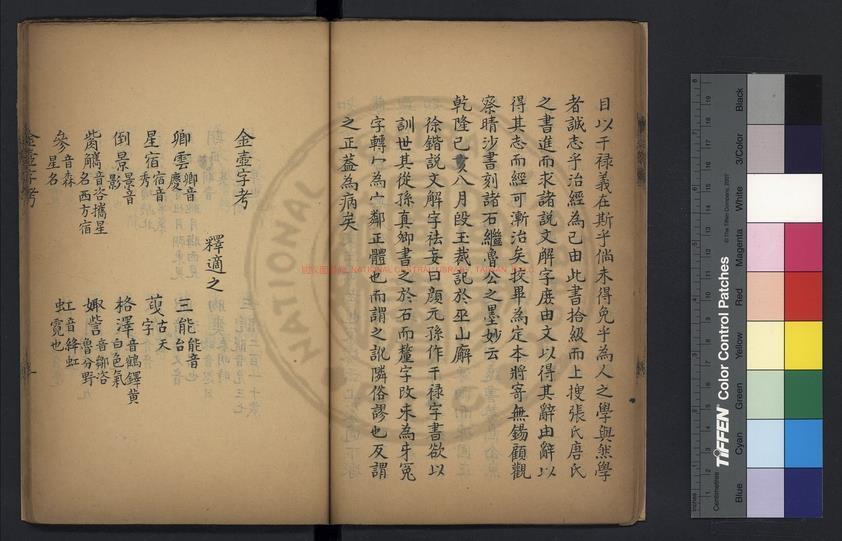 目以干祿義在斯乎倘未得免乎為人之學與然學
者誠志乎治經為己由此書拾級而上搜張氏唐氏
之書進而求諸說文解字庶由文以得其辭由辭以
得其志而經可漸治矣挍畢為定本將寄無錫顧觀
察晴沙書刻諸石繼魯公之墨妙云
乾隆己亥八月段玉裁記於巫山廨
徐鍇說文解字祛妄曰顏元孫作干祿字書欲以
訓世其從孫真卿書之於石而釐字改末為牙冤
字轉冖為宀鄰正體也而謂之訛隣俗謬也反謂
之正葢為病矣
金壺字考
釋適之
卿雲 卿音慶
三能 能音台
星宿 宿音秀
𦶎字 古天
倒景 景音影
格澤 音鶴鐸黄白色氣
觜觿 音咨攜星名西方宿
娵訾 音鄒咨魯分野
參 音森星名
虹 音絳虹霓也
金壺字考
NATIONAL CENTRAL LIBRARY, TAIWAN
Inches
Centimetres
TIFFEN Color Control Patches
© The Tiffen Company, 2007
Blue
Cyan
Green
Yellow
Red
Magenta
White
3/Color
Black